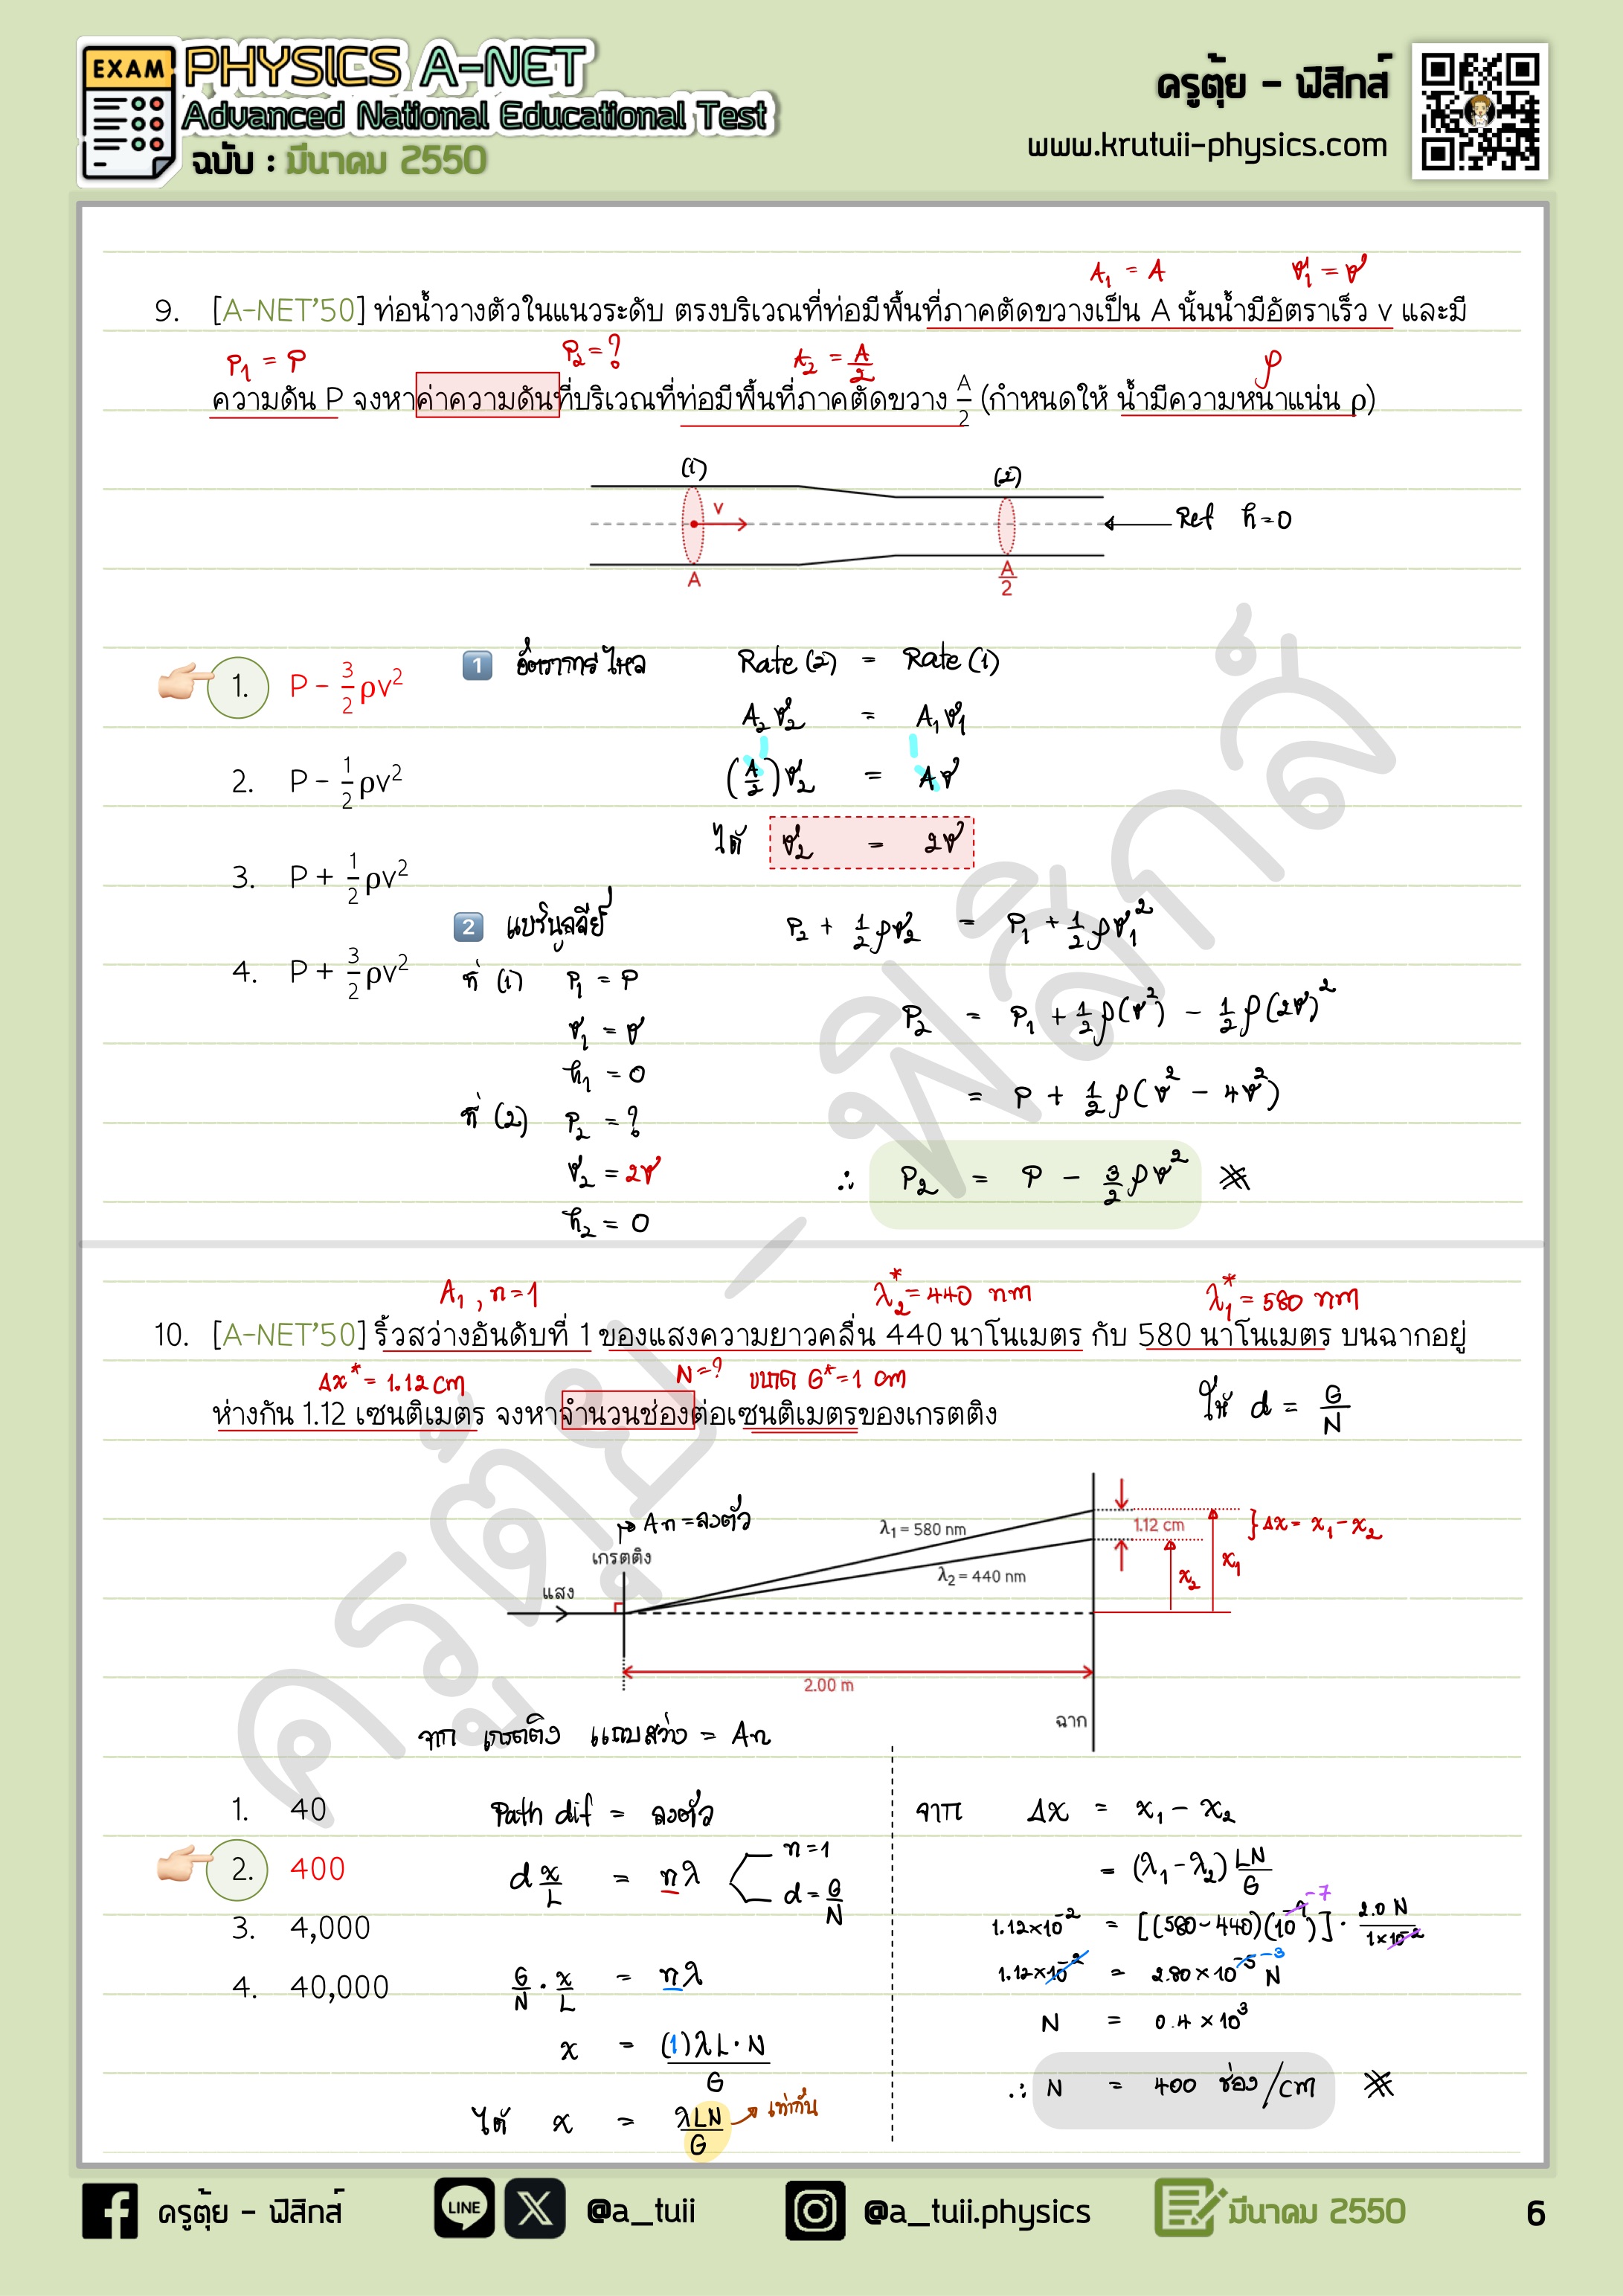 EXAM
PHYSICS A-NET
Advanced National Educational Test
ฉบับ : มีนาคม 2550
ครูตุ้ย - ฟิสิกส์
www.krutuii-physics.com
A₁ = A
v₁ = v
9. [A-NET’50] ท่อน้ำวางตัวในแนวระดับ ตรงบริเวณที่ท่อมีพื้นที่ภาคตัดขวางเป็น A นั้นน้ำมีอัตราเร็ว v และมี
P₁ = P
P₂ = ?
A₂ = A/2
ρ
ความดัน P จงหาค่าความดันที่บริเวณที่ท่อมีพื้นที่ภาคตัดขวาง A/2 (กำหนดให้ น้ำมีความหนาแน่น ρ)
(1)
(2)
v
Ref h=0
A
A/2
1. P - 3/2 ρv²
2. P - 1/2 ρv²
3. P + 1/2 ρv²
4. P + 3/2 ρv²
1 อัตราการไหล
Rate (2) = Rate (1)
A₂v₂ = A₁v₁
(A/2)v₂ = Av
ได้ v₂ = 2v
2 แบร์นูลลีย์
P₂ + 1/2 ρv₂ = P₁ + 1/2 ρv₁²
ที่ (1) P₁ = P
v₁ = v
h₁ = 0
ที่ (2) P₂ = ?
v₂ = 2v
h₂ = 0
P₂ = P₁ + 1/2 ρ(v²) - 1/2 ρ(2v)²
= P + 1/2 ρ(v² - 4v²)
∴ P₂ = P - 3/2 ρv²
A₁ , n=1
λ₂* = 440 nm
λ₁* = 580 nm
10. [A-NET’50] ริ้วสว่างอันดับที่ 1 ของแสงความยาวคลื่น 440 นาโนเมตร กับ 580 นาโนเมตร บนฉากอยู่
Δx* = 1.12 cm
N=?
ขนาด G* = 1 cm
ห่างกัน 1.12 เซนติเมตร จงหาจำนวนช่องต่อเซนติเมตรของเกรตติง
ให้ d = G/N
An = ลงตัว
เกรตติง
แสง
λ₁ = 580 nm
λ₂ = 440 nm
1.12 cm
Δx = x₁ - x₂
x₂
x₁
2.00 m
ฉาก
จาก เกรตติง แถบสว่าง = An
1. 40
2. 400
3. 4,000
4. 40,000
Path dif = ลงตัว
d x/L = nλ
n=1
d = G/N
G/N · x/L = nλ
x = (1)λL·N/G
ได้ x = λLN/G
เท่ากัน
จาก Δx = x₁ - x₂
= (λ₁ - λ₂) LN/G
1.12×10⁻² = [(580-440)(10⁻⁹)] · 2.0 N/1×10⁻²
-7
1.12×10⁻² = 2.80×10⁻⁵ N
-3
N = 0.4×10³
∴ N = 400 ช่อง/cm
ครูตุ้ย - ฟิสิกส์
ครูตุ้ย - ฟิสิกส์
LINE
@a_tuii
@a_tuii.physics
มีนาคม 2550
6